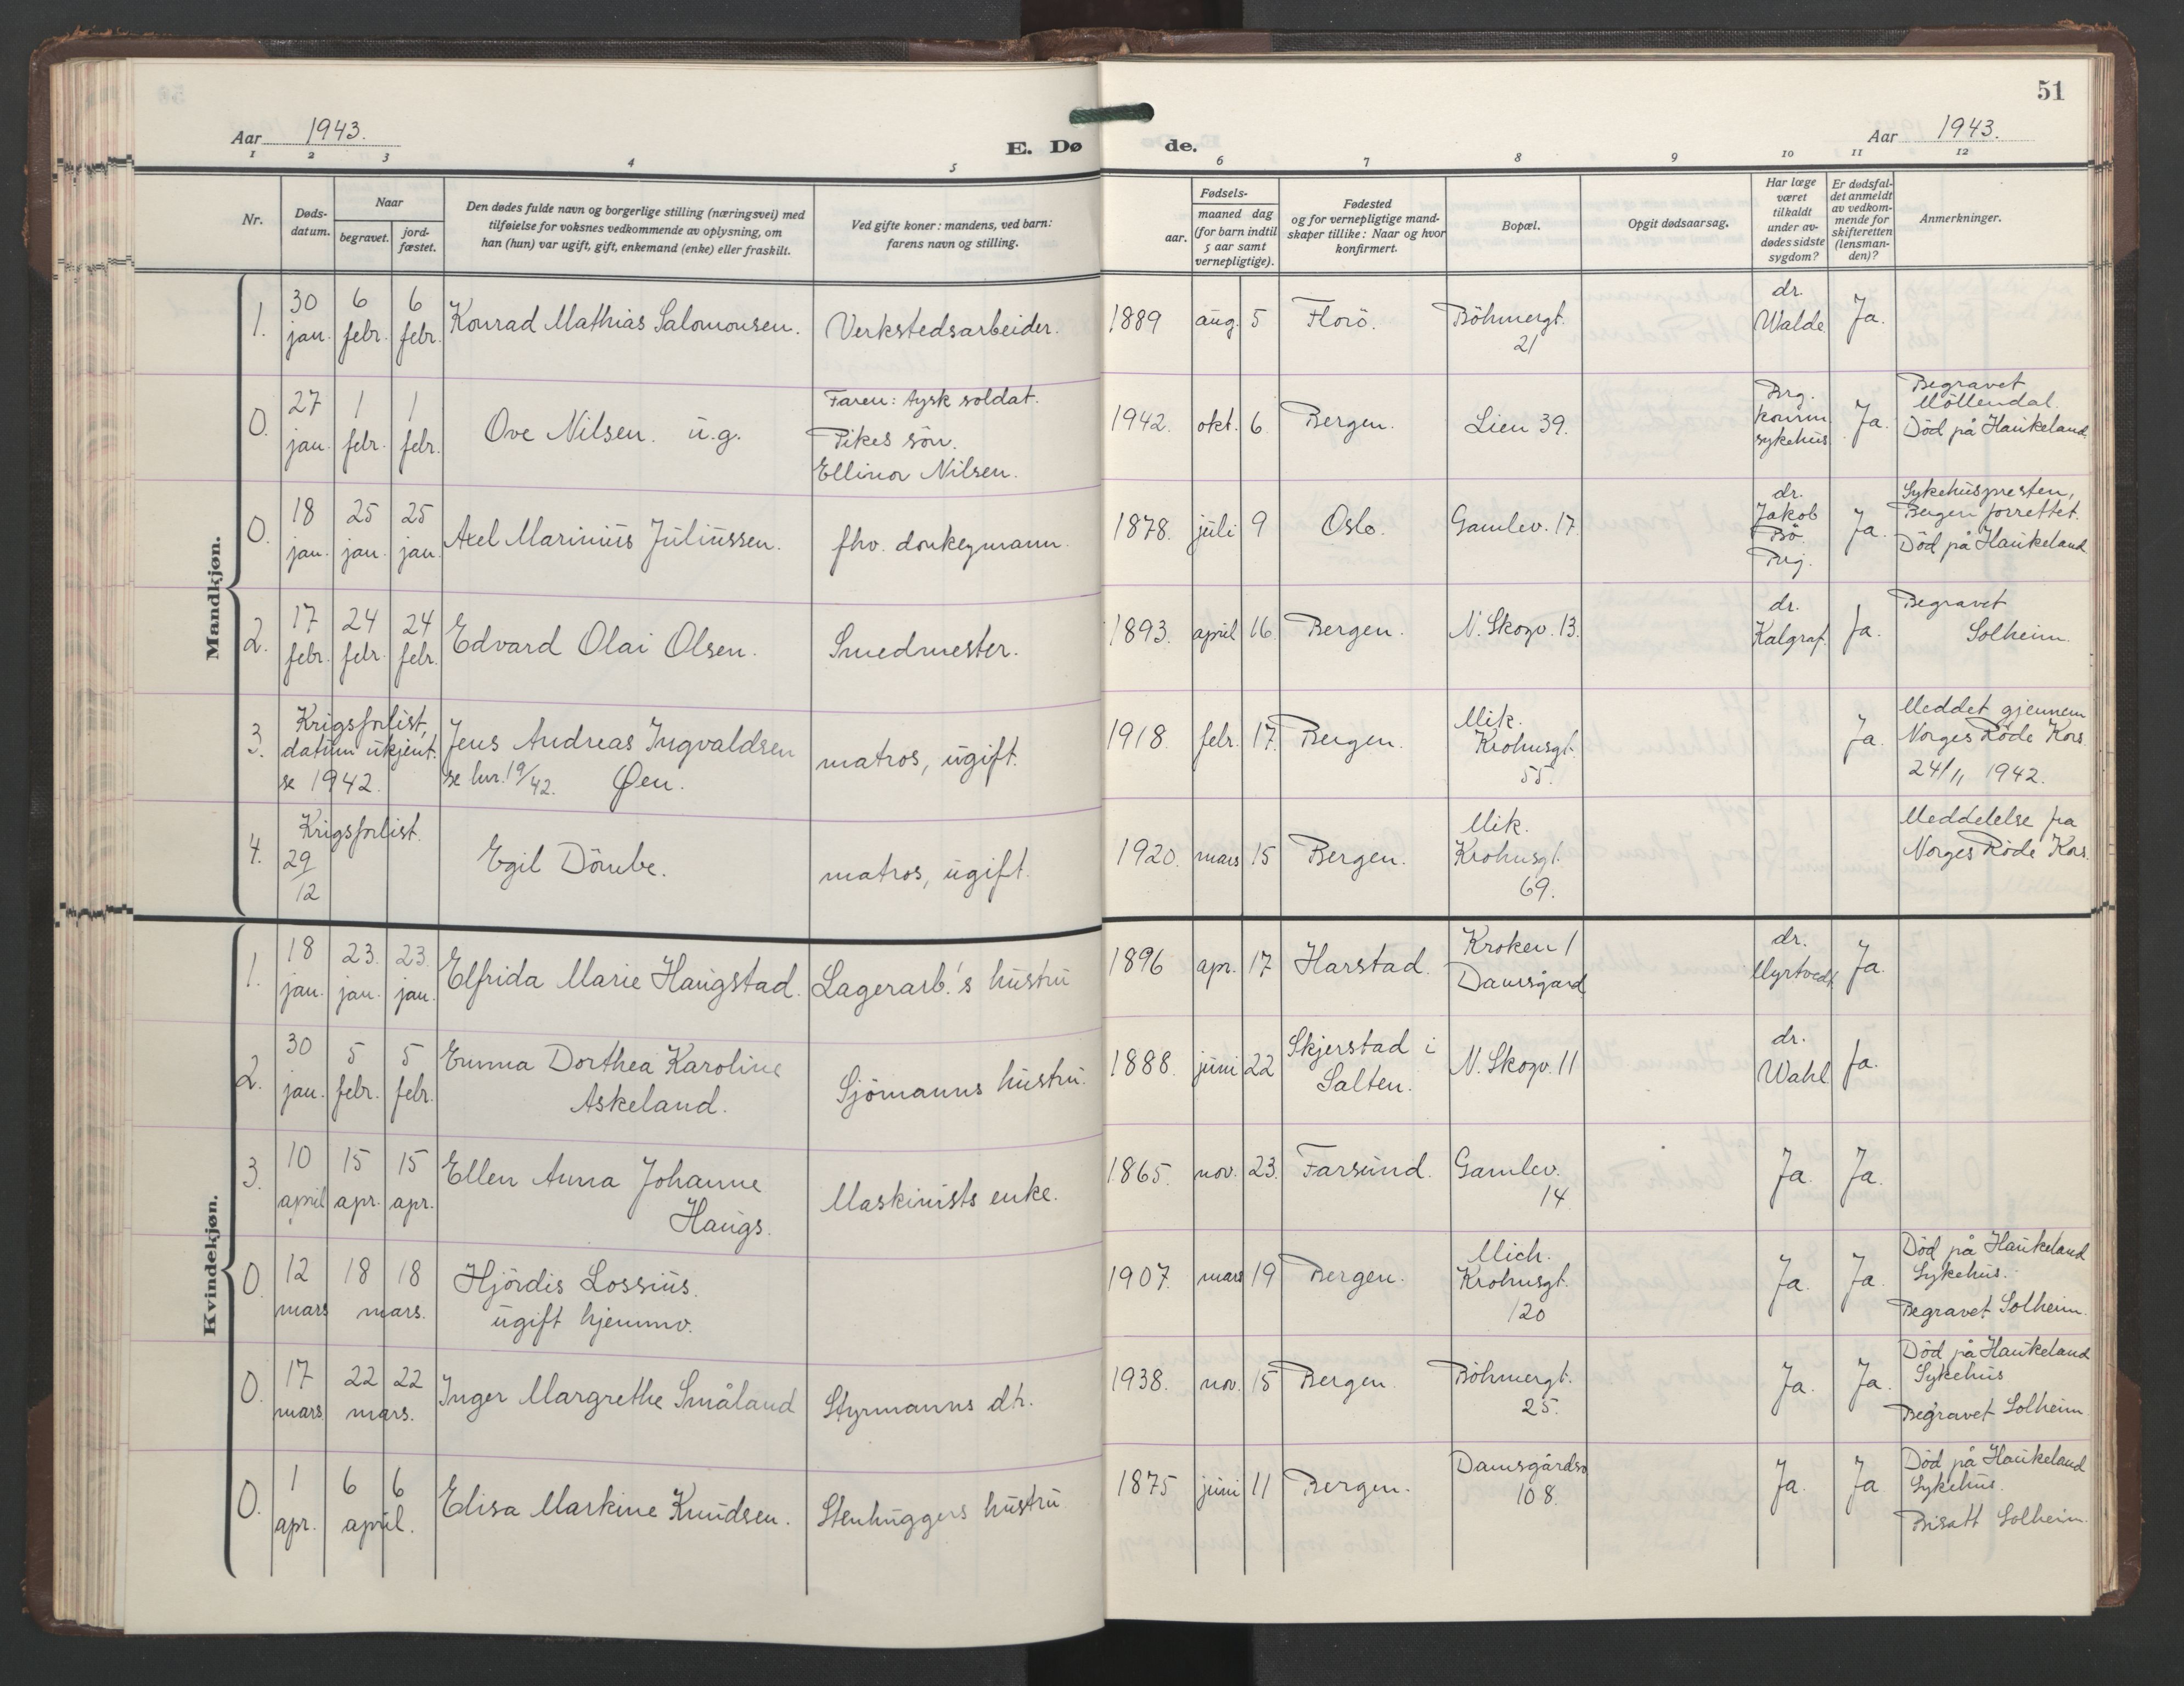 51
Aar 1943.
E. Dø de.
Aar 1943.
1 2 3 4 5 6 7 8 9 10 11 12
Nr.
Døds-
datum.
Naar
begravet.
jord-
fæstet.
Den dødes fulde navn og borgerlige stilling (næringsvei) med
tilføielse for voksnes vedkommende av oplysning, om
han (hun) var ugift, gift, enkemand (enke) eller fraskilt.
Ved gifte koner: mandens, ved barn:
farens navn og stilling.
aar.
Fødsels-
maaned dag
(for barn indtil
5 aar samt
vernepligtige).
Fødested
og for vernepligtige mand-
skaper tillike: Naar og hvor
konfirmert.
Bopæl.
Opgit dødsaarsag.
Har læge
været
tilkaldt
under av-
dødes sidste
sygdom?
Er dødsfal-
det anmeldt
av vedkom-
mende for
skifteretten
(lensman-
den)?
Anmerkninger.
Mandkjøn.
1.
30 jan.
6 febr.
6 febr.
Konrad Mathias Salomonsen.
Verkstedsarbeider.
1889 aug. 5
Florö.
Böhmergt.
21
dr.
Walde
Ja.
0.
27 jan.
1 febr.
1 febr.
Ove Nilsen. u.g.
Faren: tysk soldat.
Pikes sön.
Ellinor Nilsen.
1942. okt. 6.
Bergen.
Lien 39.
Brg.
komm.
sykehus
Ja.
Begravet
Möllendal.
Död på Haukeland.
0.
18 jan.
25 jan.
25 jan.
Axel Marinius Juliussen.
fhv. donkeymann.
1878. juli 9
Oslo.
Gamlev. 17.
dr.
Jakob
Bö.
Ja.
Sykehuspresten,
Bergen forrettet.
Död på Haukeland
2.
17 febr.
24 febr.
24 febr.
Edvard Olai Olsen.
Smedmester.
1893. april 16.
Bergen.
N. Skogv. 13.
dr.
Kalgraf.
Ja.
Begravet
Solheim.
3.
Krigsforlist,
datum ukjent.
se 1942.
Jens Andreas Ingvaldsen
se lnr. 19/42. Øen.
matros, ugift.
1918. febr. 17.
Bergen.
Mik.
Krohnsgt.
55.
Ja.
Meddet gjennem
Norges Röde Kors
24/11 1942.
4.
Krigsforlist.
29
12
Egil Dömbe.
matros, ugift.
1920. mars 15
Bergen.
Mik.
Krohnsgt.
69.
Meddelelse fra
Norges Röde Kors.
Kvindekjøn.
1.
18 jan.
23. jan.
23. jan.
Elfrida Marie Haugstad.
Lagerarb.'s hustru
1896 apr. 17
Harstad.
Kroken 1
Damsgård
dr.
Myrtvedt.
Ja.
2.
30 jan.
5 febr.
5 febr.
Emma Dorthea Karoline
Askeland.
Sjömanns hustru.
1888. juni 22
Skjerstad i
Salten.
N. Skogv. 11
dr.
Wahl
Ja.
3.
10 april
15 apr.
15 apr.
Ellen Anna Johanne
Haugs.
Maskinists enke.
1865. nov. 23.
Farsund.
Gamlev.
14.
Ja.
Ja.
0.
12 mars
18 18
mars.
Hjördis Lossius.
ugift hjemmv.
1907. mars 19
Bergen.
Mich.
Krohnsgt.
120
Ja.
Ja.
Död på Haukeland
Sykehus.
Begravet Solheim.
0.
17 mars.
22 22
mars.
Inger Margrethe Småland
Styrmanns dtr.
1938. nov. 15
Bergen
Böhmergt.
25.
Ja.
Ja.
Död på Haukeland
Sykehus
Begravet Solheim
0.
1 apr.
6 6
april.
Elisa Markine Knudsen.
Stenhuggers hustru
1875 juni 11
Bergen.
Damsgårdsv.
108.
Ja.
Ja
Död på Haukeland
Sykehus.
Bisatt Solheim.